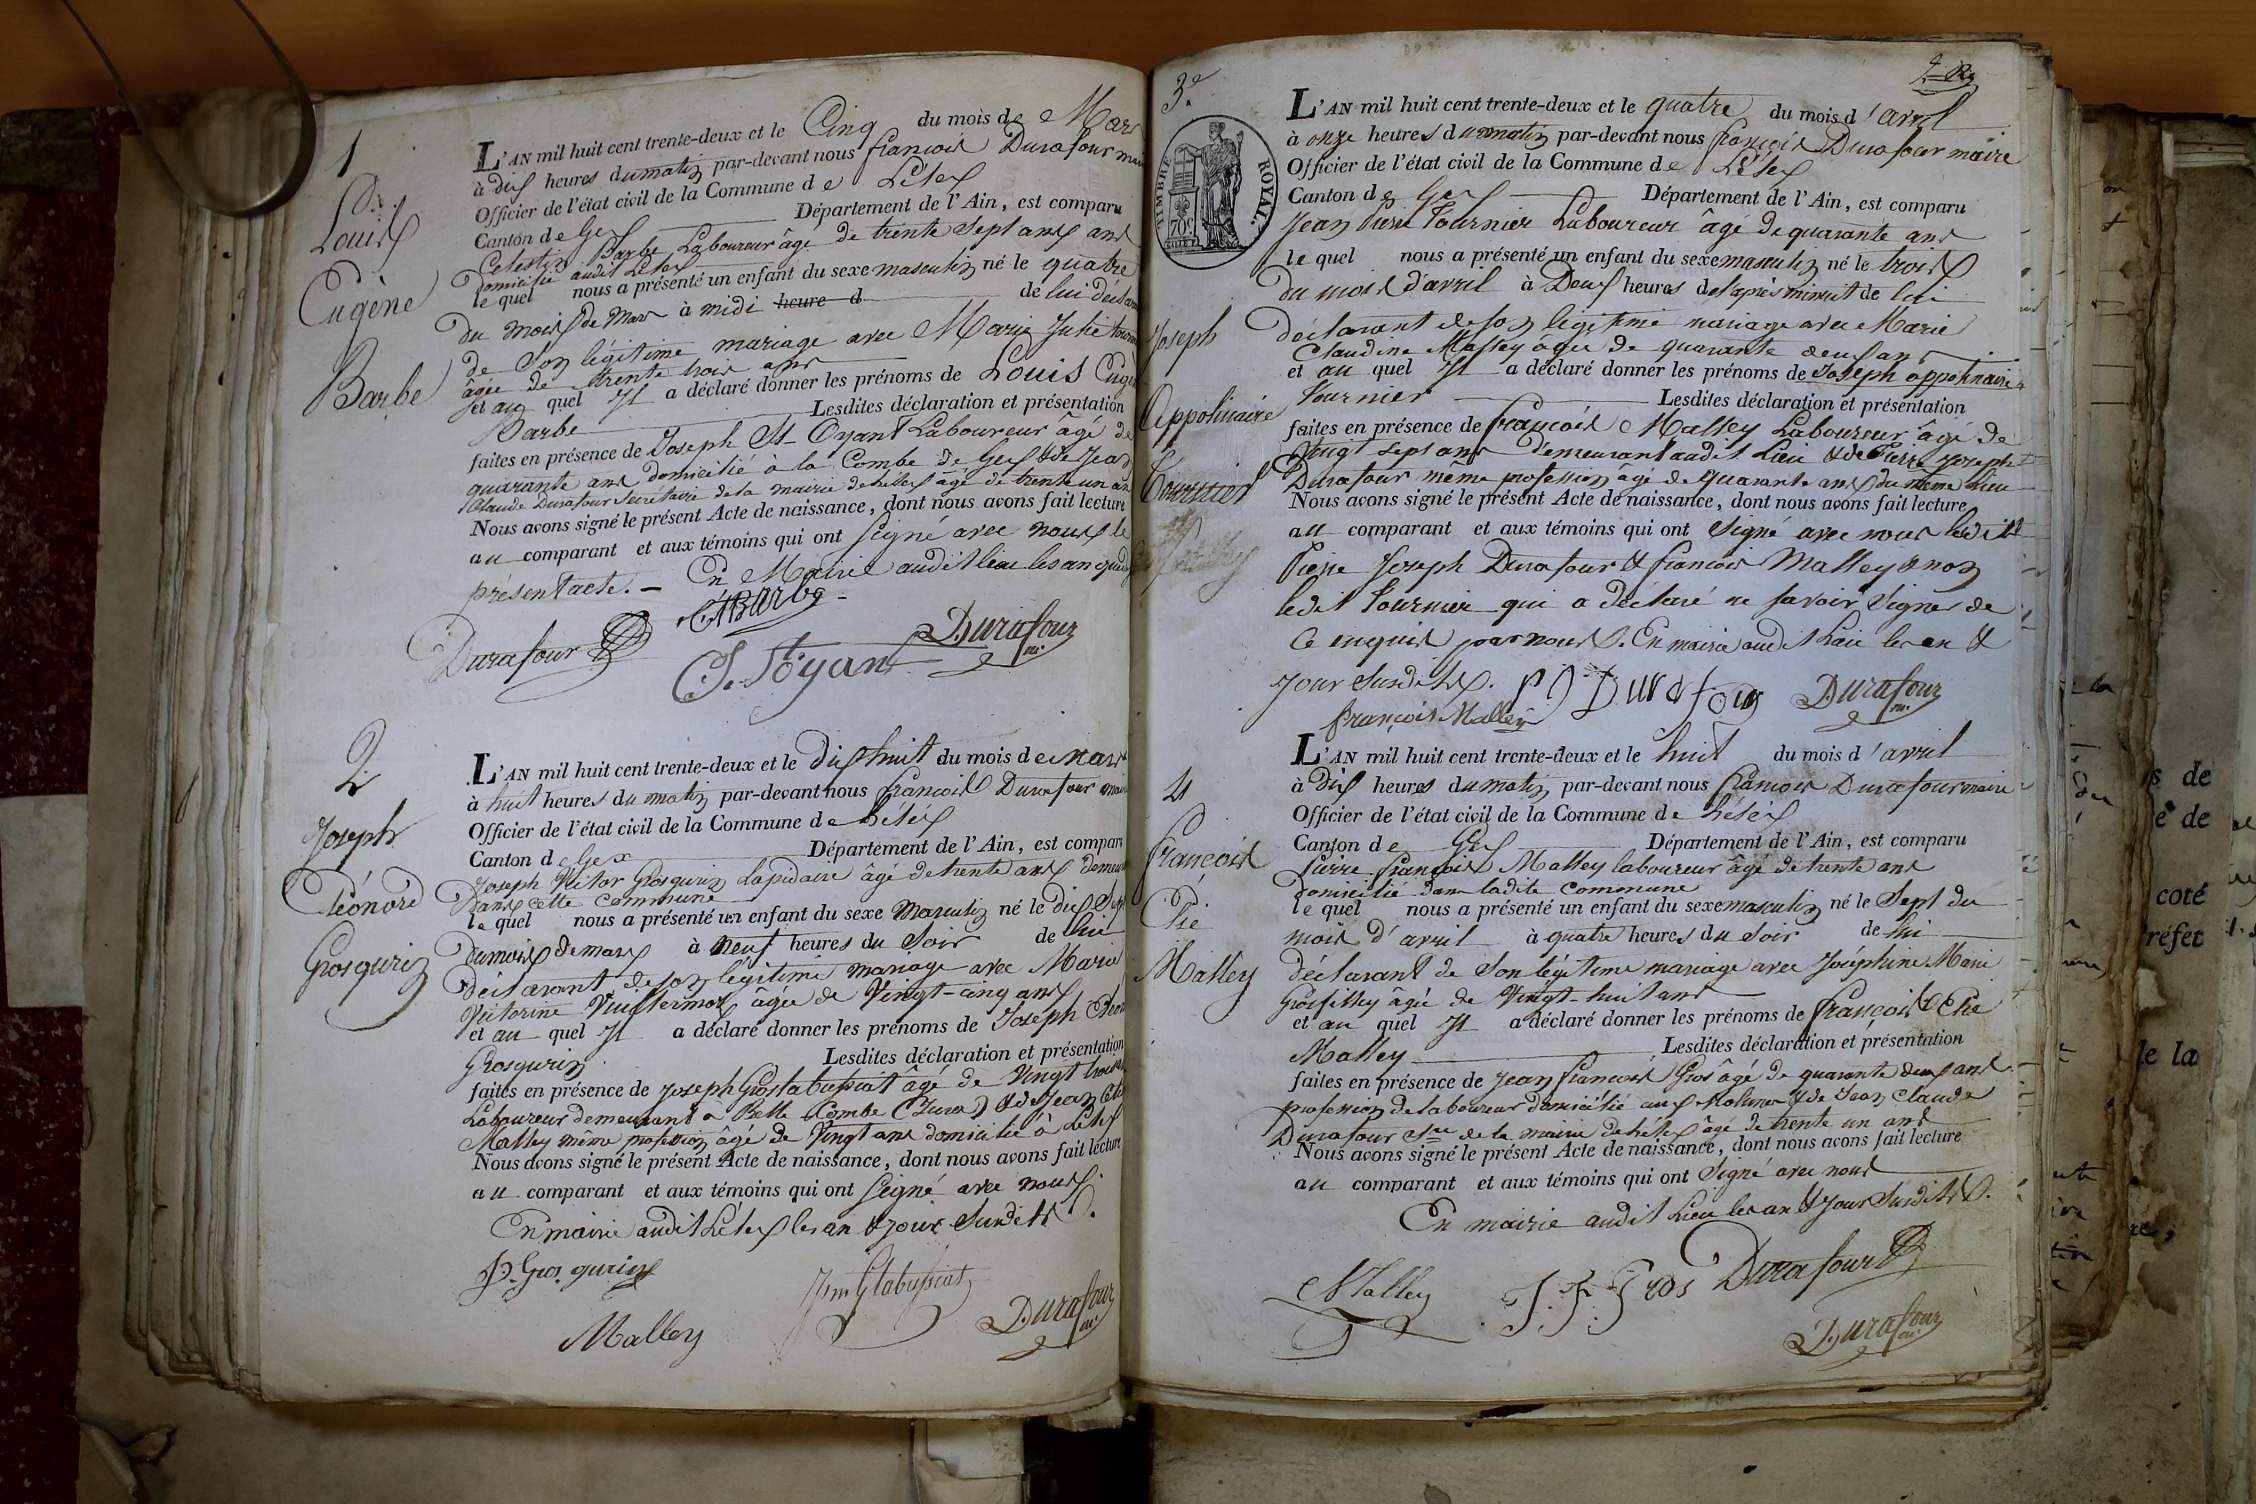 1
Louis
Eugène
Barbe
L'AN mil huit cent trente-deux et le Cinq du mois de Mars
à dix heures du matin par-devant nous francois Durafour maire
Officier de l'état civil de la Commune de Lélex
Canton de Gex Département de l'Ain, est comparu
Celestin Barbe Laboureur âgé de trente sept ans
domicilié audit Lélex
le quel nous a présenté un enfant du sexe masculin né le quatre
du mois de Mars à midi heure d de lui déclarant
de son légitime mariage avec Marie Julie
âgée de trente trois ans
et au quel Il a déclaré donner les prénoms de Louis Eugène
Barbe Lesdites déclaration et présentation
faites en présence de Joseph St-Oyant Laboureur âgé de
quarante ans domicilié à la Combe de Gex & de Jean
Claude Durafour Secrétaire de la mairie de Lélex âgé de trente un ans
Nous avons signé le présent Acte de naissance, dont nous avons fait lecture
au comparant et aux témoins qui ont signé avec nous le
présent acte. En Mairie audit lieu les an que
Barbe
Durafour
J. StOyant
Durafour m.
2
Joseph
Cléonord
Grosgurin
L'AN mil huit cent trente-deux et le dix huit du mois de Mars
à huit heures du matin par-devant nous francois Durafour maire
Officier de l'état civil de la Commune de Lélex
Canton de Gex Département de l'Ain, est comparu
Joseph Victor Grosgurin Lapidaire âgé de trente ans demeurant
dans cette commune
le quel nous a présenté un enfant du sexe Masculin né le dix Sept
du mois de mars à neuf heures du Soir de lui
déclarant de son légitime mariage avec Marie
Victorine Vuillermoz âgée de Vingt-cinq ans
et au quel Il a déclaré donner les prénoms de Joseph Cléonord
Grosgurin Lesdites déclaration et présentation
faites en présence de Joseph Groslabussiat âgé de Vingt trois ans
Laboureur demeurant à Belle Combe (Jura) & de Jean
Malley même profession âgé de Vingt ans domicilié à Lélex
Nous avons signé le présent Acte de naissance, dont nous avons fait lecture
au comparant et aux témoins qui ont signé avec nous.
En mairie audit Lélex les an & jour Susdits.
J. Gros gurin
Glabussiat
Malley
Durafour m.
3e
TIMBRE ROYAL
70c
Joseph
Appolinaire
Tournier
L'AN mil huit cent trente-deux et le quatre du mois d'avril
à onze heures du matin par-devant nous françois Durafour maire
Officier de l'état civil de la Commune de Lélex
Canton de Gex Département de l'Ain, est comparu
Jean Pierre Tournier Laboureur âgé de quarante ans
le quel nous a présenté un enfant du sexe masculin né le trois
du mois d'avril à Deux heures de l'après minuit de lui
déclarant de son légitime mariage avec Marie
Claudine Malley âgée de quarante deux ans
et au quel Il a déclaré donner les prénoms de Joseph appolinaire
Tournier Lesdites déclaration et présentation
faites en présence de françois Malley Laboureur âgé de
Vingt sept ans demeurant audit Lieu & de Pierre Joseph
Durafour même profession âgé de Quarante ans du même lieu
Nous avons signé le présent Acte de naissance, dont nous avons fait lecture
au comparant et aux témoins qui ont Signé avec nous lesdits
Pierre Joseph Durafour & francois Malley & non
ledit Tournier qui a déclaré ne savoir Signer de
Ce enquis par nous. En mairie audit Lieu les an &
jour Susdits. P J Durafour Durafour m.
françois Malley
4
francois
Elie
Malley
L'AN mil huit cent trente-deux et le huit du mois d'avril
à Dix heures du matin par-devant nous francois Durafour maire
Officier de l'état civil de la Commune de Lélex
Canton de Gex Département de l'Ain, est comparu
Pierre francois Malley laboureur âgé de trente ans
domicilié dans ladite commune
le quel nous a présenté un enfant du sexe masculin né le Sept du
mois d'avril à quatre heures du Soir de lui
déclarant de Son légitime mariage avec Joséphine Marie
Grosfilley âgée de Vingt-huit ans
et au quel Il a déclaré donner les prénoms de francois Elie
Malley Lesdites déclaration et présentation
faites en présence de Jean francois Gros âgé de quarante deux ans
profession de laboureur domicilié aux Molunes & de Jean Claude
Durafour Sre de la mairie de Lélex âgé de trente un ans
Nous avons signé le présent Acte de naissance, dont nous avons fait lecture
au comparant et aux témoins qui ont Signé avec nous
En mairie audit Lieu les an & jour Susdits.
Malley
J. F. Gros
Durafour
Durafour m.
de
de
coté
réfet
de la